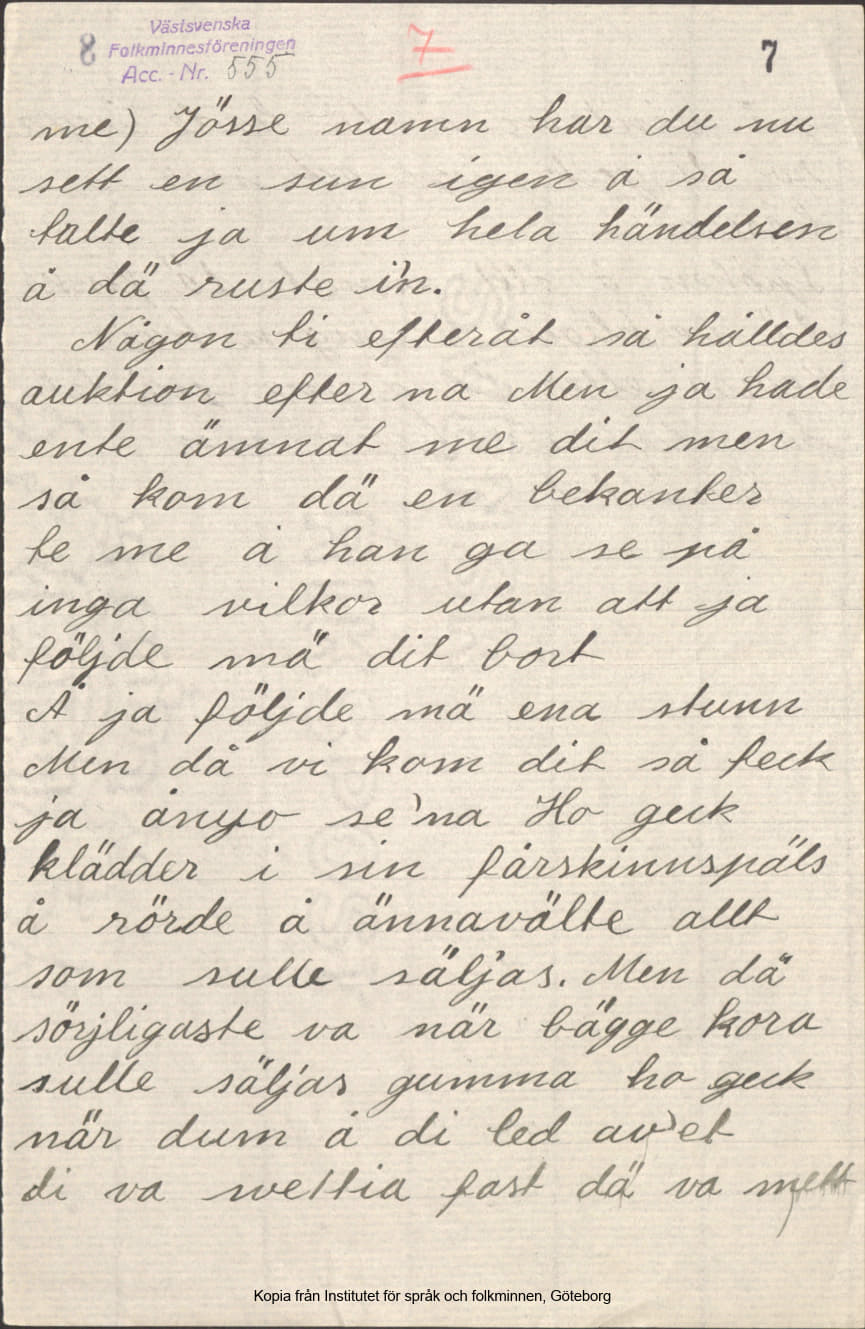 Västsvenska
8 Folkminnesföreningen
Acc. - Nr. 555
7
7
me) Jösse namn har du nu
sett en sun igen å så
talte ja um hela händelsen
å dä ruste i'n.
Någon ti efteråt så hålldes
auktion efter na Men ja hade
ente ämnat me dit men
så kom dä en bekanter
te me å han ga se på
inga vilkor utan att ja
följde mä dit bort
Å ja följde mä ena stunn
Men då vi kom dit så feck
ja ånyo se'na Ho geck
klädder i sin fårskinnspäls
å rörde å ännavälte allt
som sulle säljas. Men dä
sörjligaste va når bägge kora
sulle säljas gumma ho geck
når dum å di led av et
di va swettia fast dä va mett
Kopia från Institutet för språk och folkminnen, Göteborg